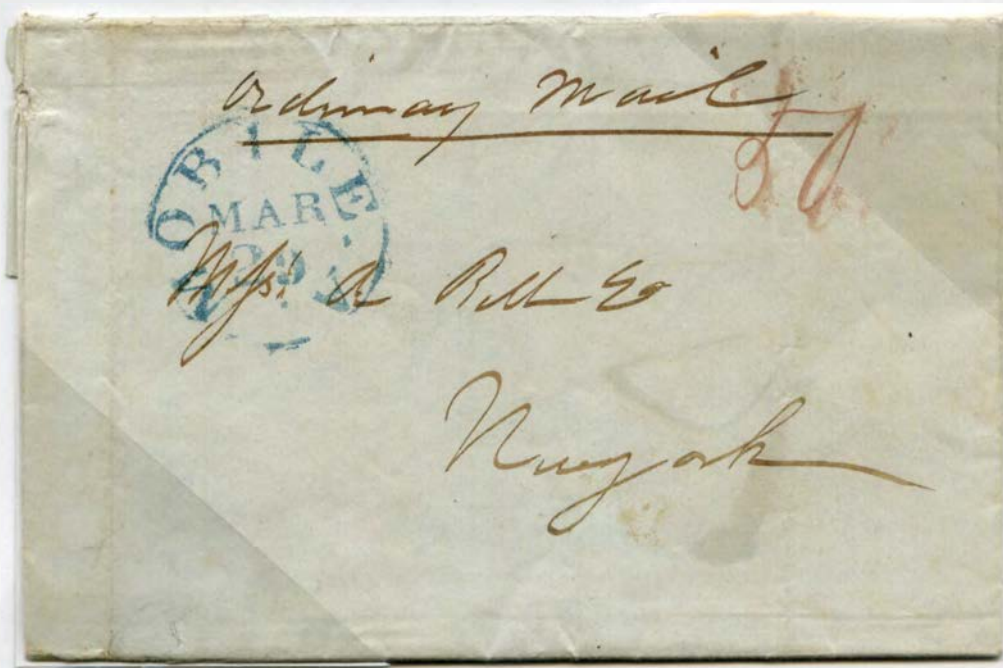 Ordinary Mail
50
MOBILE
MAR
29
Messrs A Bell & Co
New York